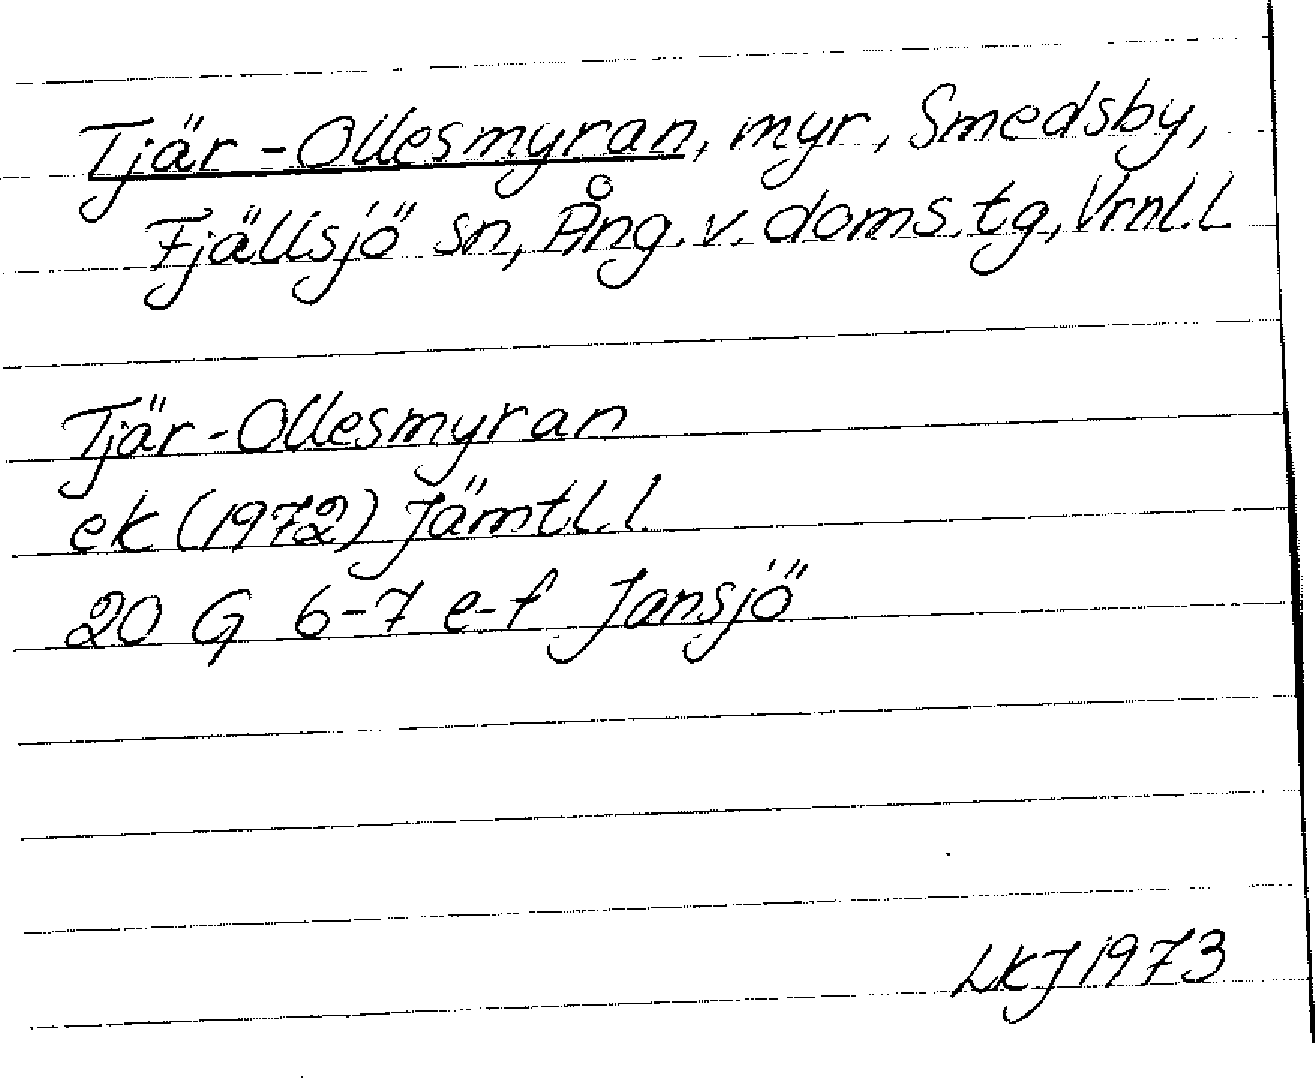 Tjär-Ollesmyran, myr, Smedsby,
Fjällsjö sn, Ång. v. doms. tg, Vrnl. l
Tjär-Ollesmyran
ek (1972) Jämtl. l
20 G 6-7 e-f Jansjö
LKJ 1973